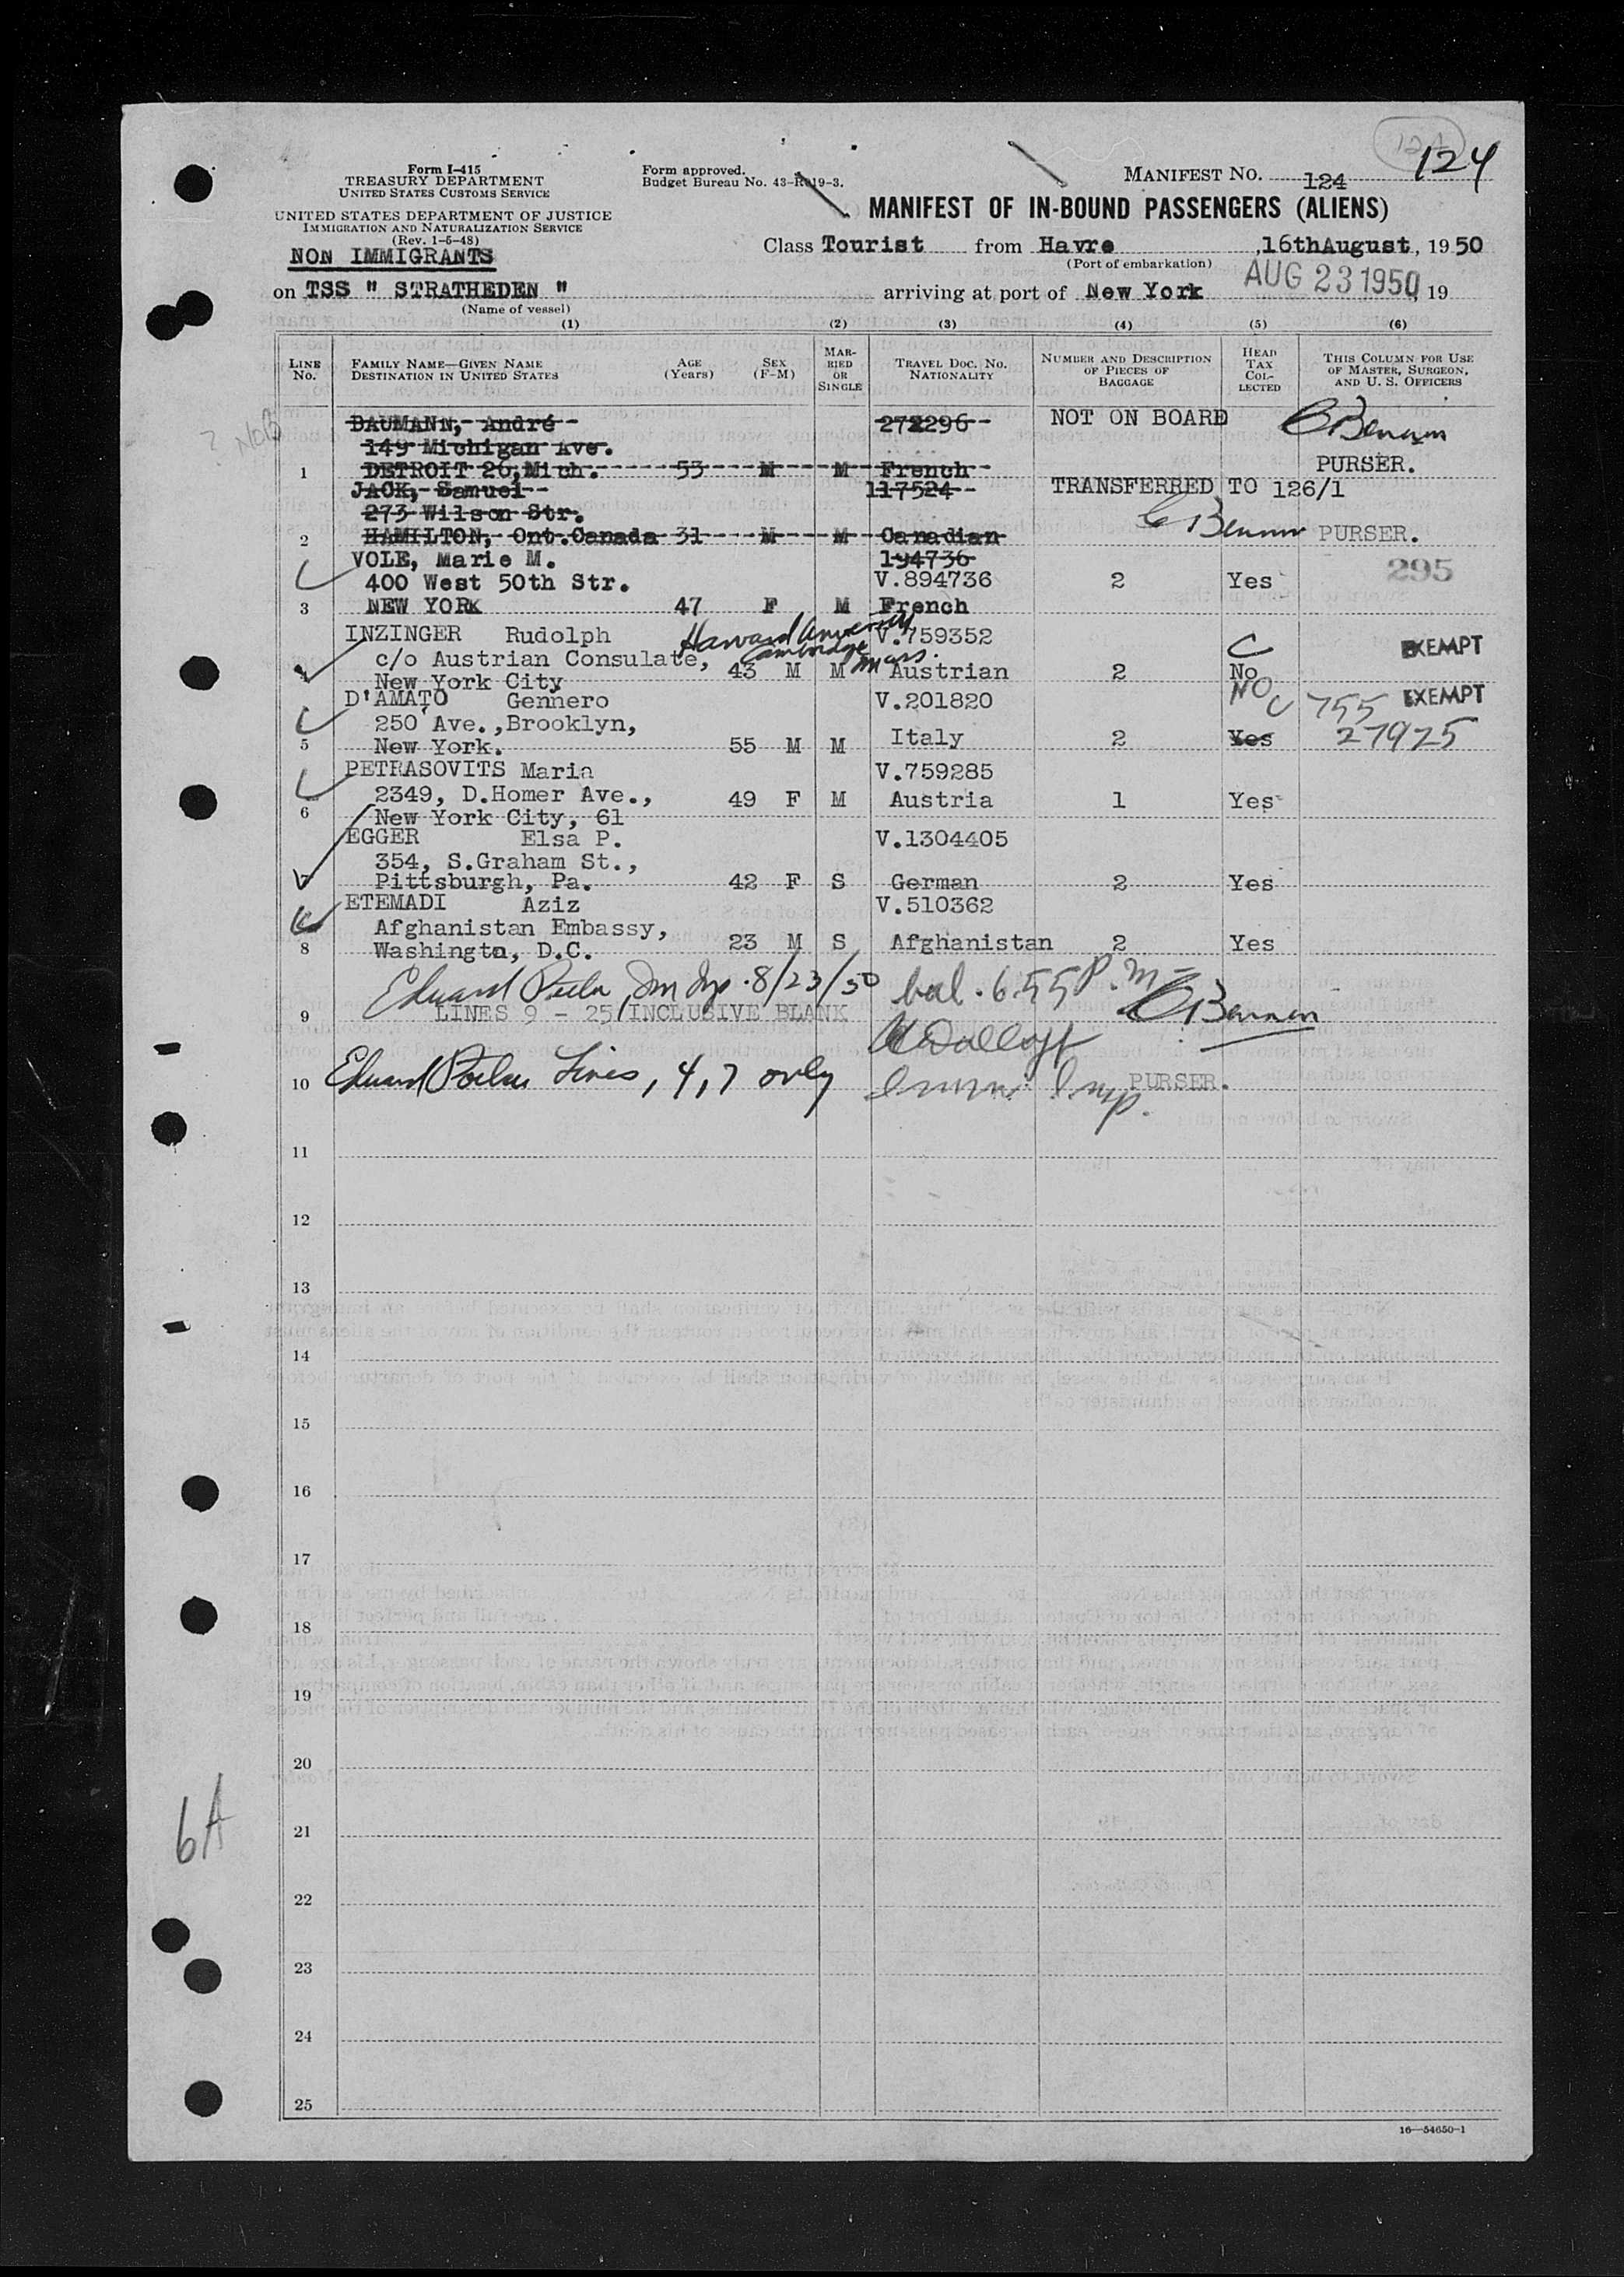 124
Form I-415
TREASURY DEPARTMENT
UNITED STATES CUSTOMS SERVICE
Form approved.
Budget Bureau No. 43-R019-3.
MANIFEST NO. 124
124
UNITED STATES DEPARTMENT OF JUSTICE
IMMIGRATION AND NATURALIZATION SERVICE
(Rev. 1-5-48)
MANIFEST OF IN-BOUND PASSENGERS (ALIENS)
NON IMMIGRANTS
Class Tourist from Havre ,16thAugust, 1950
(Port of embarkation)
on TSS " STRATHEDEN " arriving at port of New York AUG 23 1950 19
(Name of vessel)
(1) (2) (3) (4) (5) (6)
LINE No. FAMILY NAME—GIVEN NAME DESTINATION IN UNITED STATES AGE (Years) SEX (F-M) MARRIED OR SINGLE TRAVEL DOC. NO. NATIONALITY NUMBER AND DESCRIPTION OF PIECES OF BAGGAGE HEAD TAX COLLECTED THIS COLUMN FOR USE OF MASTER, SURGEON, AND U. S. OFFICERS
BAUMANN, André 272296 NOT ON BOARD
149 Michigan Ave.
1 DETROIT 26, Mich. 53 M M French PURSER.
JACK, Samuel 117524 TRANSFERRED TO 126/1
273 Wilson Str.
2 HAMILTON, Ont.Canada 31 M M Canadian PURSER.
VOLE, Marie M. 194736
400 West 50th Str. V.894736 2 Yes 295
3 NEW YORK 47 F M French
INZINGER Rudolph Harvard University V.759352 C EXEMPT
c/o Austrian Consulate, Cambridge Mass.
4 New York City 43 M M Austrian 2 No
D'AMATO Gennero V.201820 NO C 755 EXEMPT
250 Ave.,Brooklyn,
5 New York. 55 M M Italy 2 Yes 27925
PETRASOVITS Maria V.759285
2349, D.Homer Ave., 49 F M Austria 1 Yes
6 New York City, 61
EGGER Elsa P. V.1304405
354, S.Graham St.,
7 Pittsburgh, Pa. 42 F S German 2 Yes
ETEMADI Aziz V.510362
Afghanistan Embassy,
8 Washingtn, D.C. 23 M S Afghanistan 2 Yes
8/23/50 bal. 6.55 P.M.
9 LINES 9 - 25 INCLUSIVE BLANK
10 Lines, 4, 7 only PURSER.
11
12
13
14
15
16
17
18
19
20
21
6A
22
23
24
25
16—54650-1